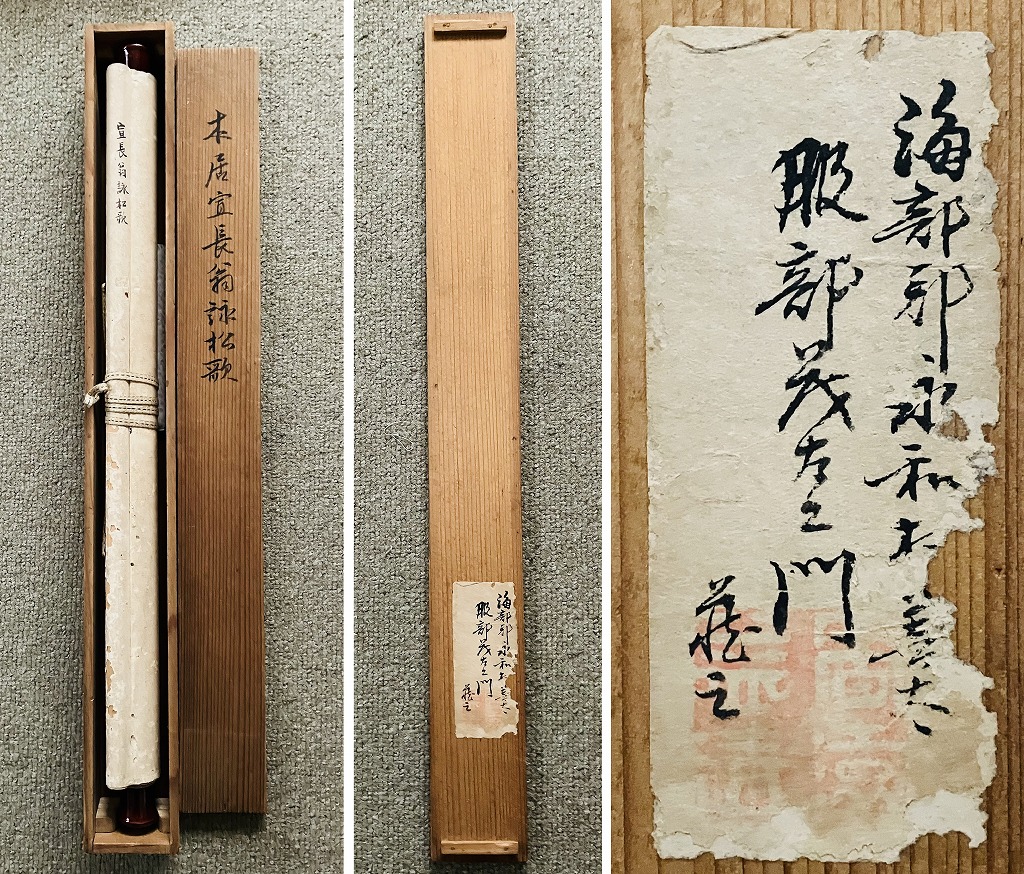 宣長翁詠松歌
本居宣長翁詠松歌
海部郡永和村善太
服部茂左エ門
蔵之
海部郡永和村善太
服部茂左エ門
蔵之